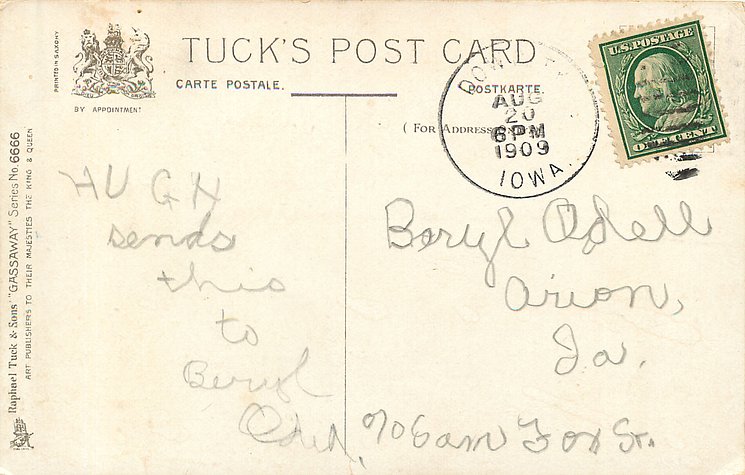 PRINTED IN SAXONY
BY APPOINTMENT
TUCK'S POST CARD
CARTE POSTALE.
POSTKARTE.
( FOR ADDRESS
AUG
20
6 PM
1909
IOWA
U.S. POSTAGE
ONE CENT
Raphael Tuck & Sons' "GASSAWAY" Series No. 6666
ART PUBLISHERS TO THEIR MAJESTIES THE KING & QUEEN
HUGH
sends
this
to
Beryl
Beryl Odell
Arion,
Ia.
% Sam Fox Sr.